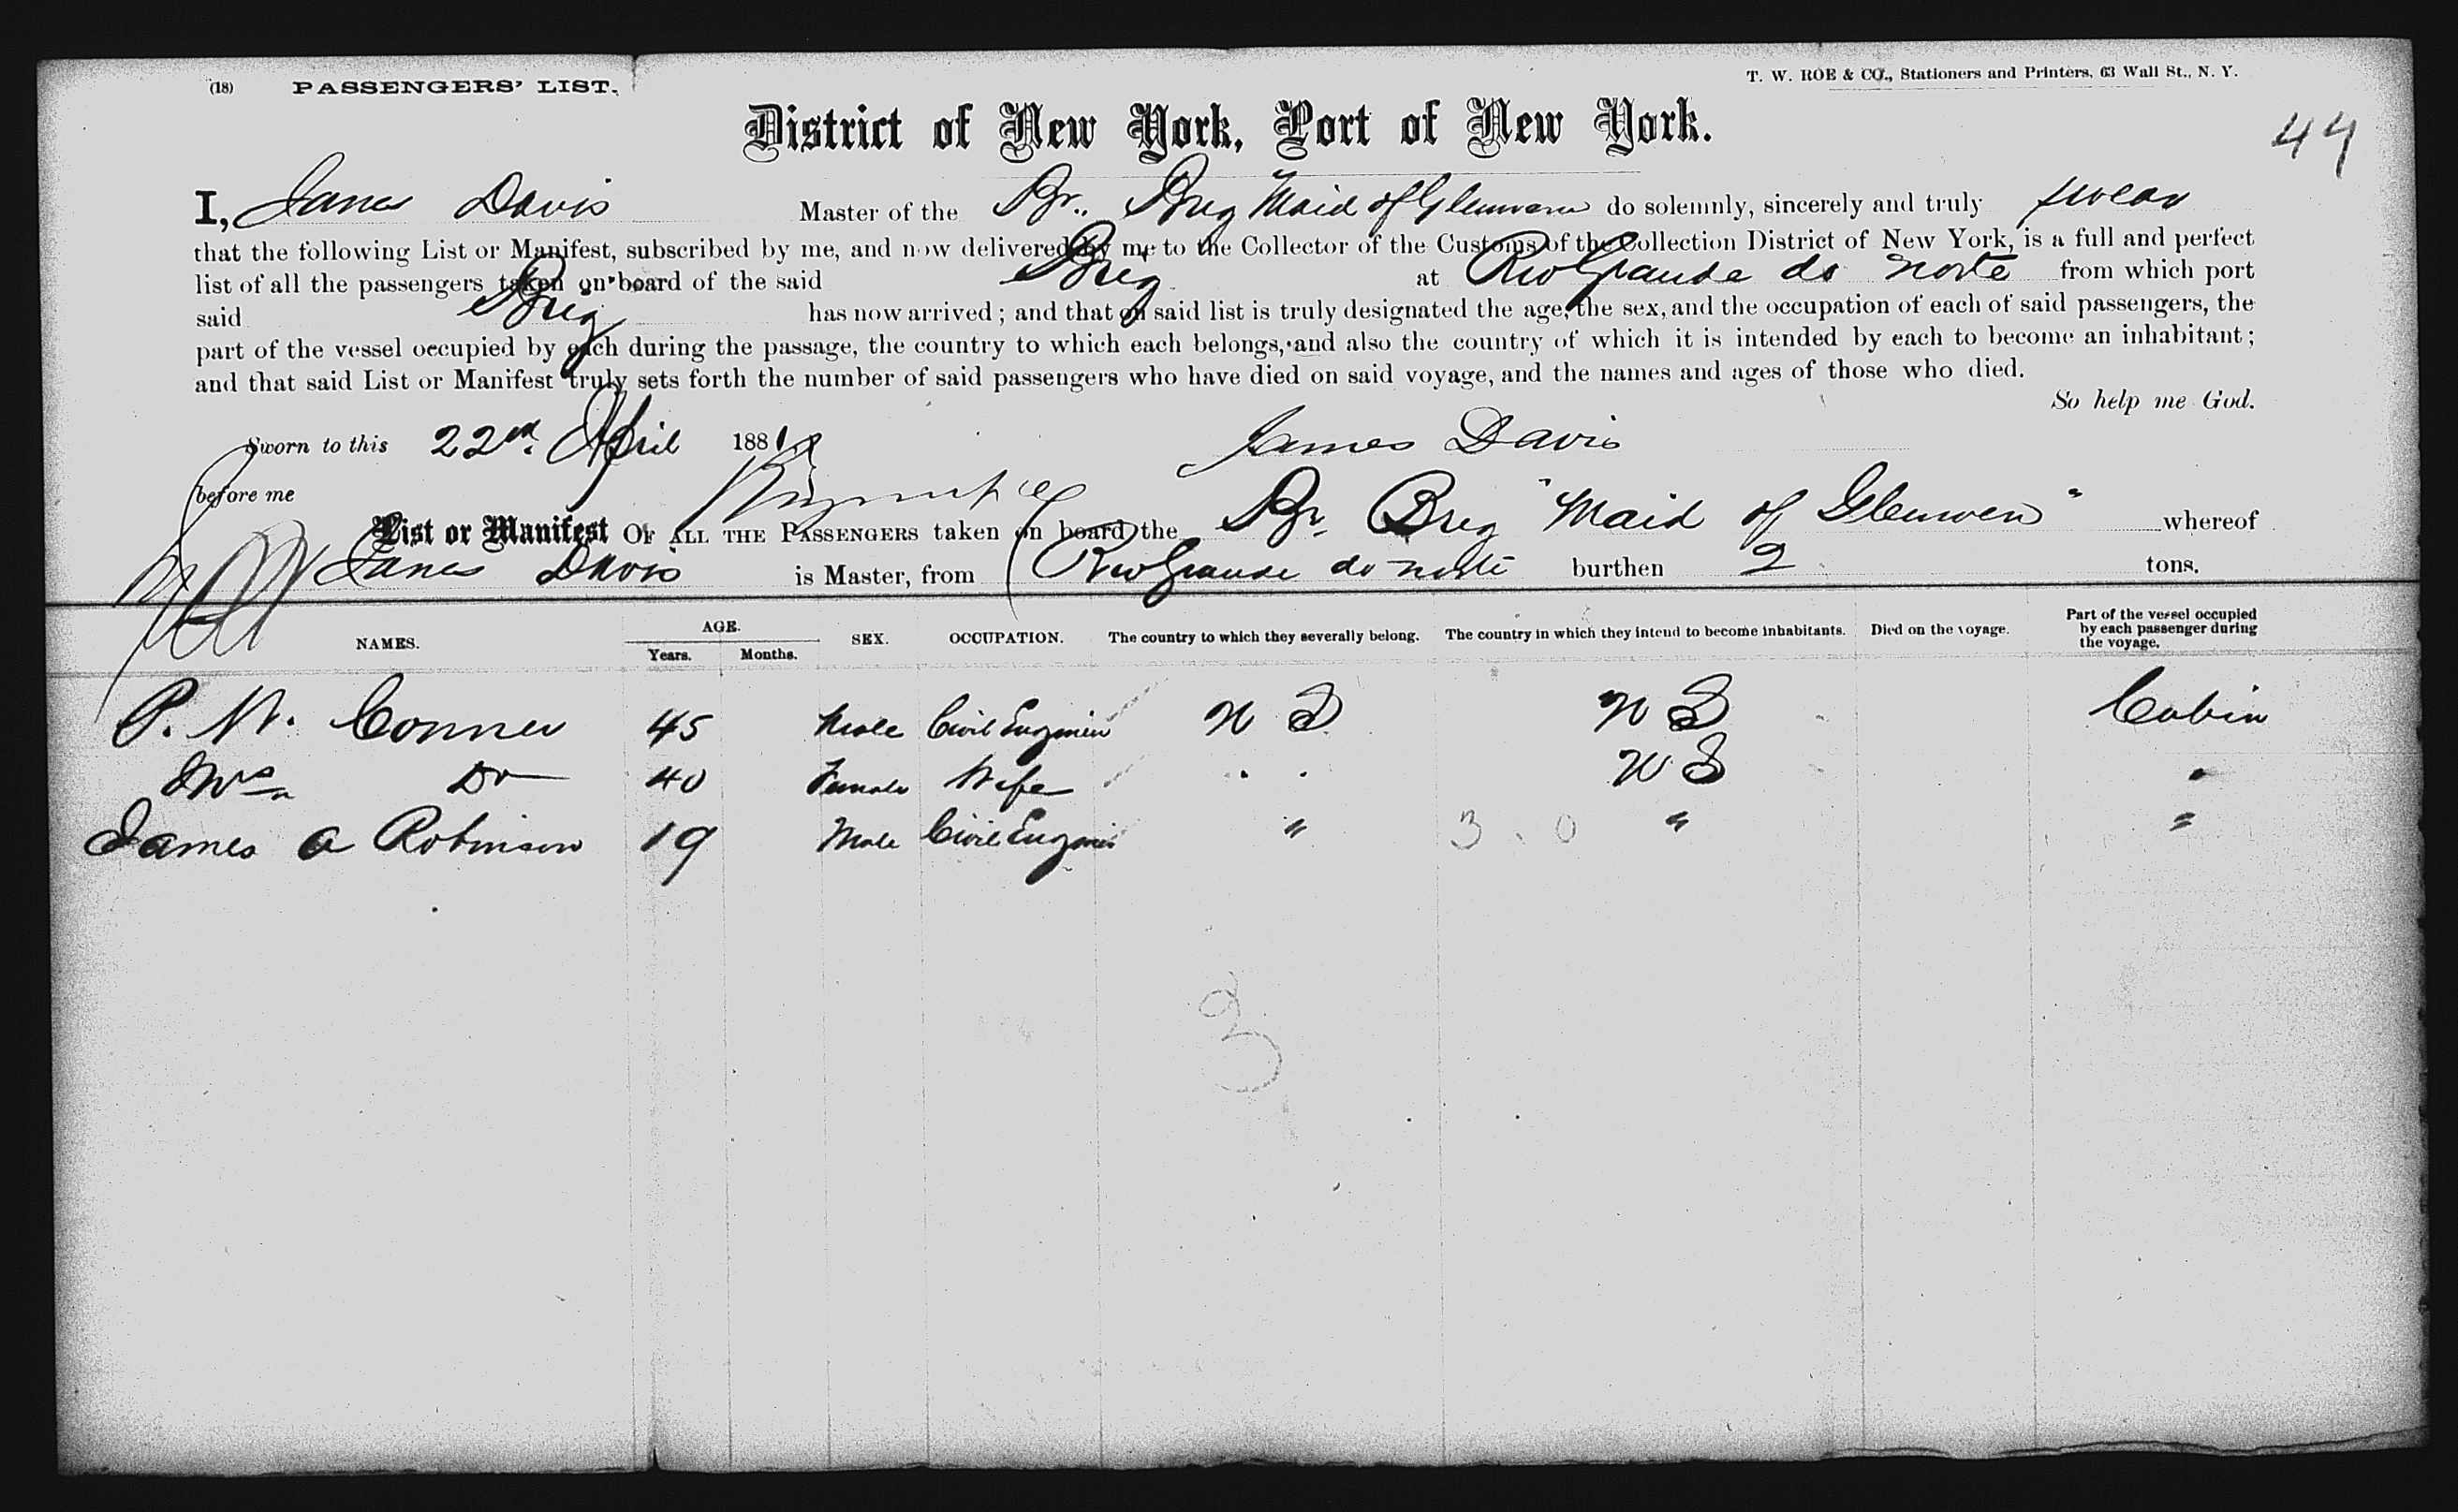 (18) PASSENGERS' LIST. T. W. ROE & CO., Stationers and Printers, 63 Wall St., N. Y.
District of New York, Port of New York.
44
I, James Davis Master of the Br. Brig Maid of Glenwern do solemnly, sincerely and truly swear
that the following List or Manifest, subscribed by me, and now delivered by me to the Collector of the Customs of the Collection District of New York, is a full and perfect
list of all the passengers taken on board of the said Brig at Rio Grande do Norte from which port
said Brig has now arrived; and that on said list is truly designated the age, the sex, and the occupation of each of said passengers, the
part of the vessel occupied by each during the passage, the country to which each belongs, and also the country of which it is intended by each to become an inhabitant;
and that said List or Manifest truly sets forth the number of said passengers who have died on said voyage, and the names and ages of those who died.
So help me God.
Sworn to this 22nd April 188 James Davis
before me
List or Manifest OF ALL THE PASSENGERS taken on board the Br. Brig "Maid of Glenwen" whereof
James Davis is Master, from Rio Grande do Norte burthen tons.
NAMES. AGE. Years. Months. SEX. OCCUPATION. The country to which they severally belong. The country in which they intend to become inhabitants. Died on the voyage. Part of the vessel occupied by each passenger during the voyage.
P. W. Conner 45 Male Civil Engineer U S U S Cabin
Mrs Do 40 Female Wife " " U S "
James A Robinson 19 Male Civil Engineer " 3 . 0 " "
3